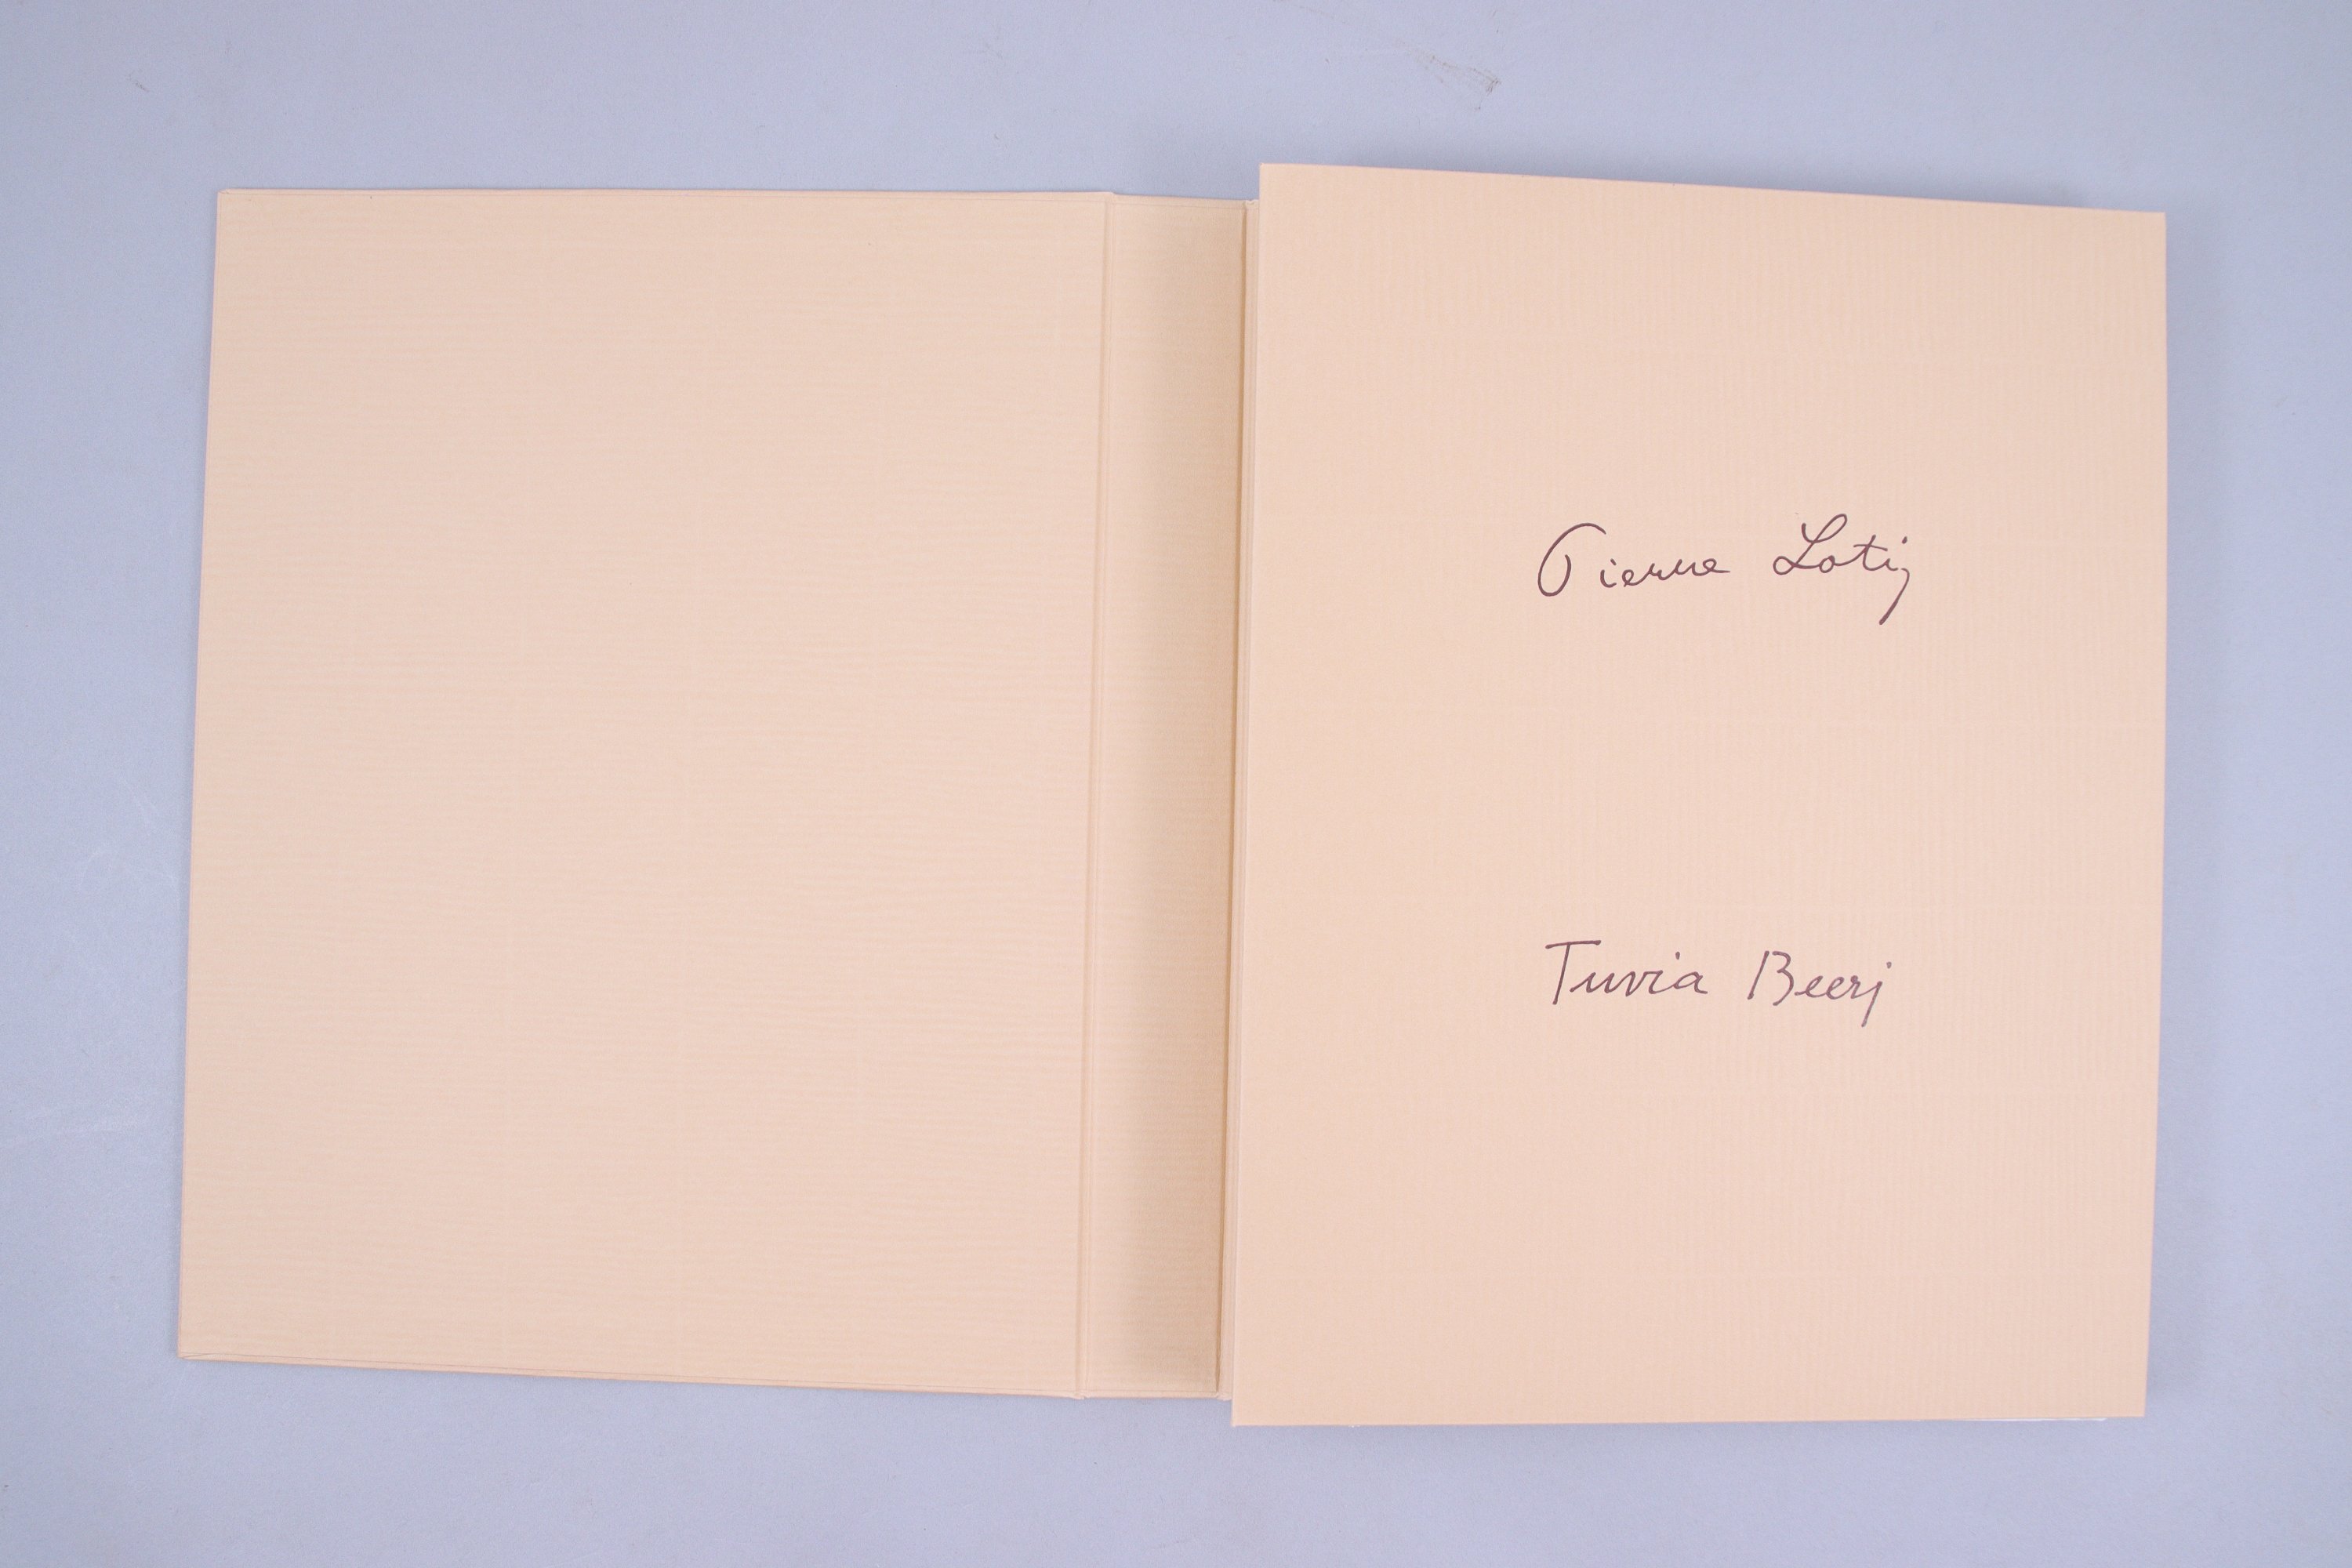 Pierre Loti
Tuvia Beeri